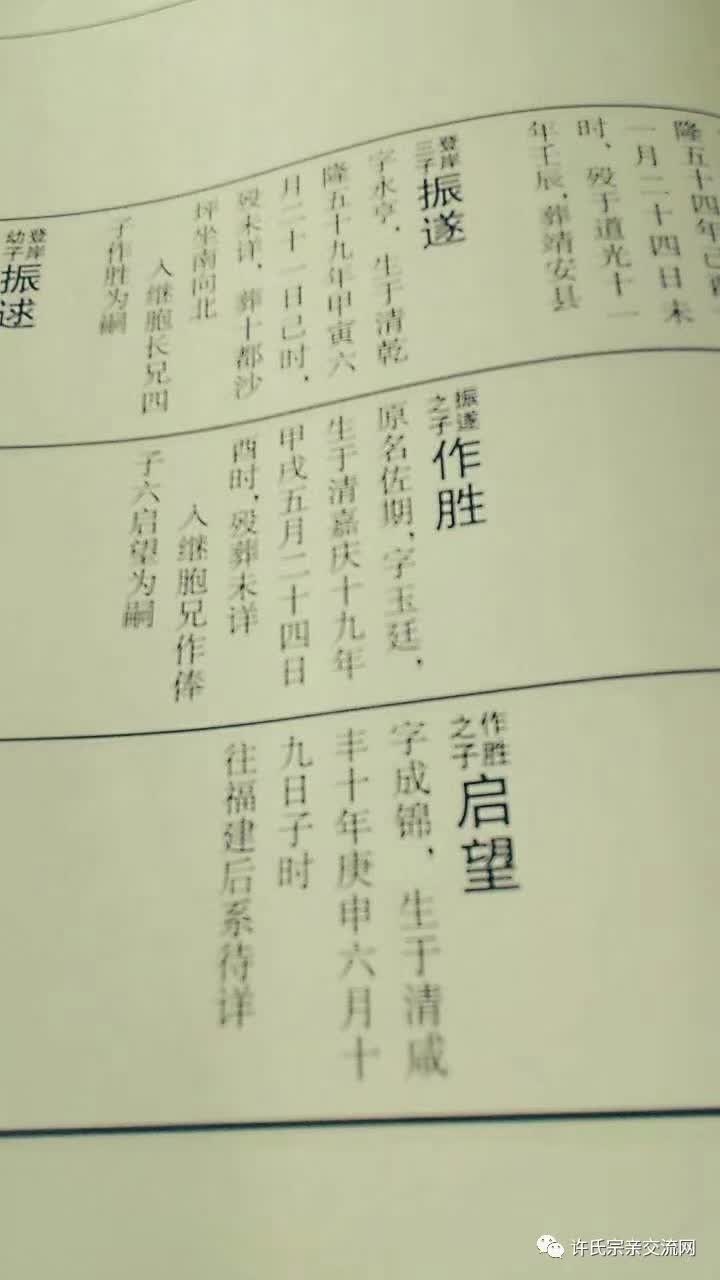 降五十四年己酉
一月二十四日未
时，殁于道光十一
年壬辰，葬靖安县
登岸
三子
振遂
字永亨，生于清乾
隆五十九年甲寅六
月二十一日巳时，
殁未详，葬十都沙
坪坐南向北
入继胞长兄四
子作胜为嗣
登岸
幼子
振逑
振遂
之子
作胜
原名佐期，字玉廷，
生于清嘉庆十九年
甲戌五月二十四日
酉时，殁葬未详
入继胞兄作俸
子六启望为嗣
作胜
之子
启望
字成锦，生于清咸
丰十年庚申六月十
九日子时
往福建后系待详
许氏宗亲交流网